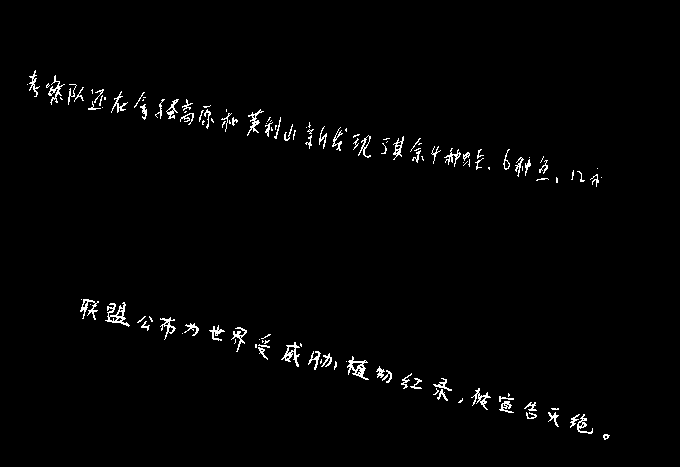 考察队还在拿骚高原和莱利山新发现了其余4种蛙、6种鱼、12
联盟公布为世界受威胁植物红录,被宣告灭绝。